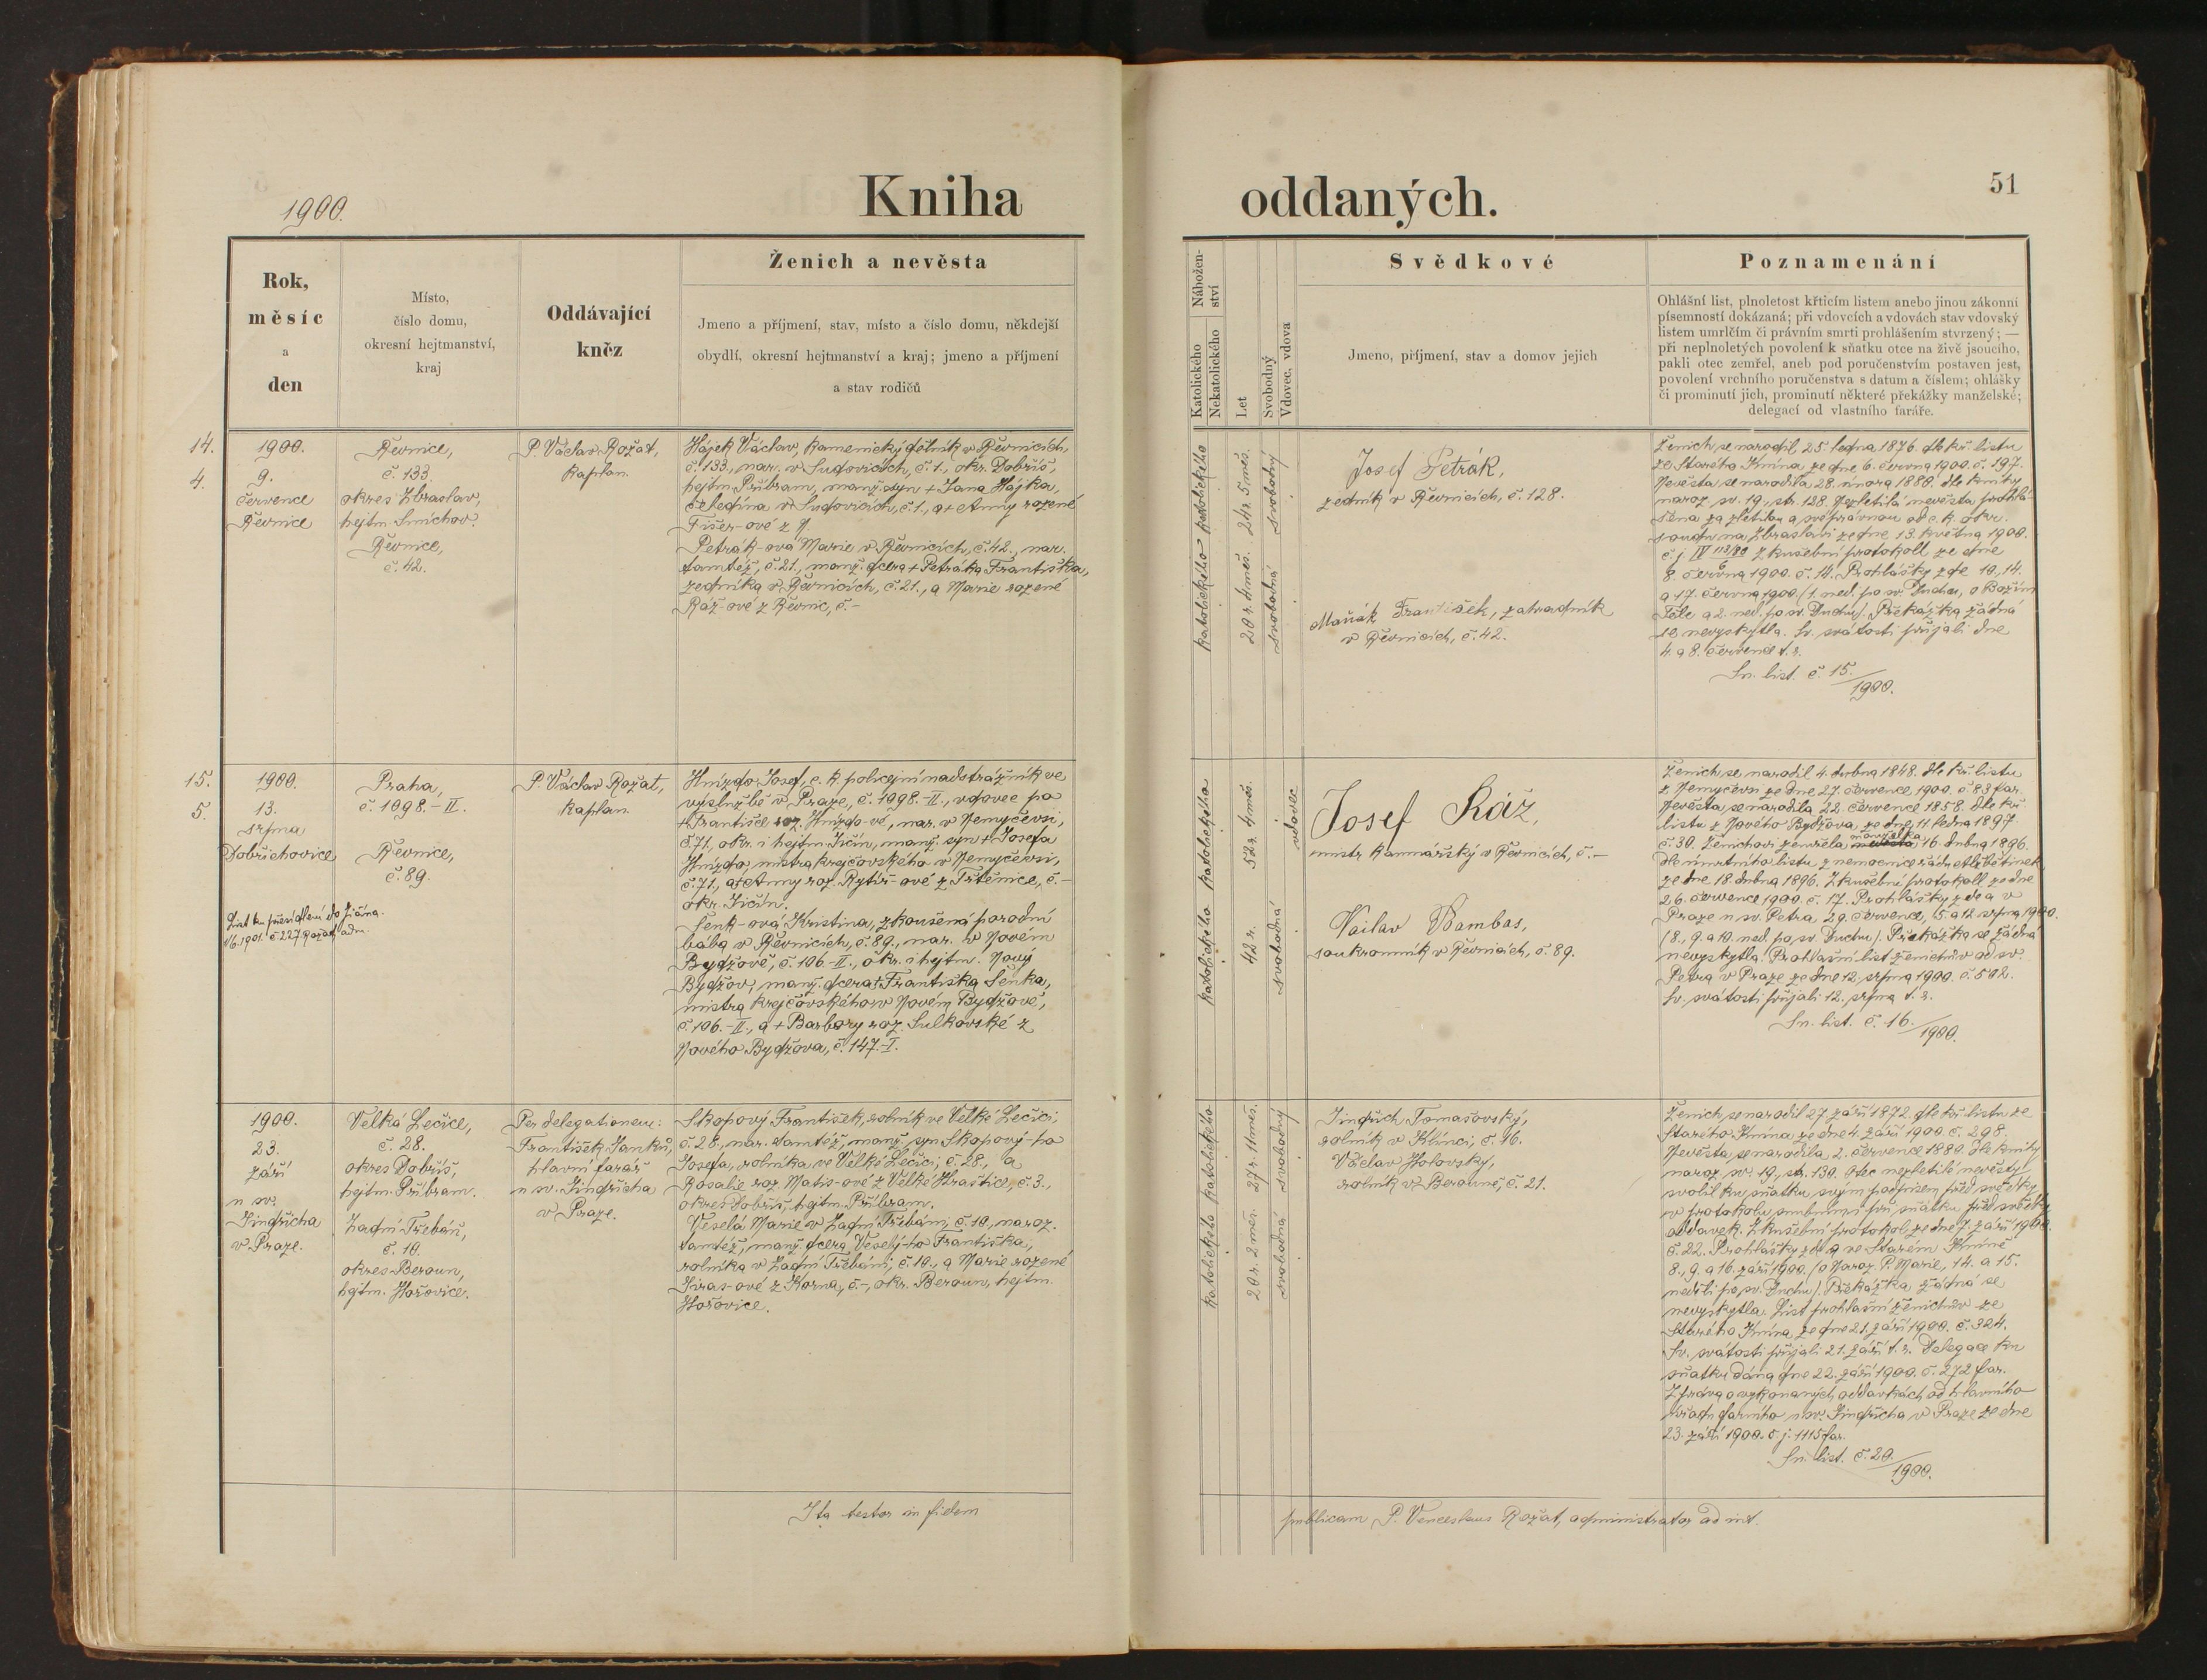 1900.
Kniha
oddaných.
51
Rok,
měsíc
a
den
Místo,
číslo domu,
okresní hejtmanství,
kraj
Oddávající
kněz
Ženich a nevěsta
Jmeno a příjmení, stav, místo a číslo domu, někdejší
obydlí, okresní hejtmanství a kraj; jmeno a příjmení
a stav rodičů
Nábožen-
ství
Katolického
Nekatolického
Let
Svobodný
Vdovec, vdova
Svědkové
Jmeno, příjmení, stav a domov jejich
Poznamenání
Ohlášní list, plnoletost křticím listem anebo jinou zákonní
písemností dokázaná; při vdovcích a vdovách stav vdovský
listem umrlčím či právním smrti prohlášením stvrzený; —
při neplnoletých povolení k sňatku otce na živě jsoucího,
pakli otec zemřel, aneb pod poručenstvím postaven jest,
povolení vrchního poručenstva s datum a číslem; ohlášky
či prominutí jich, prominutí některé překážky manželské;
delegací od vlastního faráře.
14.
4.
1900.
9.
července
Řevnice
Řevnice,
č. 133.
okres Zbraslav,
hejtm. Smíchov.
Řevnice,
č. 42.
P. Václav Rožat,
kaplan.
Hájek Václav, kamenický dělník v Řevnicích,
č. 133., nar. v Sudovicích, č. 1., okr. Dobříš,
hejtm. Příbram, manž. syn + Jana Hájka,
čeledína v Sudovicích, č. 1., a + Anny rozené
Fišer-ové z
Petrák-ová Marie v Řevnicích, č. 42., nar.
tamtéž, č. 21., manž. dcera + Petráka Františka,
zedníka v Řevnicích, č. 21., a Marie rozené
Ráž-ové z Řevnic, č. -
katolického katolického
20 r. 4 měs. 24 r. 5 měs.
svobodná svobodný
Josef Petrák,
zedník v Řevnicích, č. 128.
Maňák František, zahradník
v Řevnicích, č. 42.
Ženich se narodil 25. ledna 1876. dle kř. listu
ze Starého Knína ze dne 6. června 1900. č. 197.
Nevěsta se narodila 28. února 1880. dle knihy
naroz. sv. 19., str. 128. Nezletilá nevěsta prohlá-
šena za zletilou a svéprávnou od c. k. okr.
soudu na Zbraslavi ze dne 13. května 1900.
č. j. IV Zkušební protokoll ze dne
8. června 1900. č. 14. Prohlášky zde 10., 14.
a 17. června 1900. (1. ned. po sv. Duchu, o Božím
Těle a 2. ned. po sv. Duchu). Překážka žádná
se nevyskytla. Sv. svátosti přijali dne
4. a 8. července t. r.
Sn. list. č. 15./1900.
15.
5.
1900.
13.
srpna
Dobřichovice
Praha,
č. 1098.-II.
Řevnice,
č. 89.
P. Václav Rožat,
kaplan.
Hnízdo Josef, c. k. policejní nadstrážník ve
výslužbě v Praze, č. 1098.-II., vdovec po
+ Františce roz. Hnízdo-vé, nar. v Nemyčevsi,
č. 71., okr. i hejtm. Jičín, manž. syn + Josefa
Hnízda, mistra krejčovského v Nemyčevsi,
č. 71., a + Anny roz. Rytíř-ové z Třtěnice, č. -
okr. Jičín.
Šenk-ová Kristina, zkoušená porodní
bába v Řevnicích, č. 89., nar. v Novém
Bydžově, č. 106.-II., okr. i hejtm. Nový
Bydžov, manž. dcera + Františka Šenka,
mistra krejčovského v Novém Bydžově,
č. 106.-II., a + Barbory roz. Sulkovské z
Nového Bydžova, č. 147.-I.
katolického katolického
42 r. 52 r. 4 měs.
svobodná vdovec
Josef Ráž,
mistr kamnářský v Řevnicích, č. -
Vácslav Bambas,
soukromník v Řevnicích, č. 89.
Ženich se narodil 4. dubna 1848. dle kř. listu
z Nemyčevsi ze dne 27. července 1900. č. 83 far.
Nevěsta se narodila 22. července 1858. dle kř.
listu z Nového Bydžova ze dne 11. ledna 1897.
č. 30. Ženichovi zemřela manželka 16. dubna 1896.
dle úmrtního listu z nemocnice řádu Alžbětinek
ze dne 18. dubna 1896. Zkušební protokoll ze dne
26. července 1900. č. 17. Prohlášky zde a v
Praze u sv. Petra 29. července, 5. a 12. srpna 1900.
(8., 9. a 10. ned. po sv. Duchu). Překážka se žádná
nevyskytla. Prohlašní list ženichův od sv.
Petra v Praze ze dne 12. srpna 1900. č. 502.
Sv. svátosti přijali 12. srpna t. r.
Sn. list. č. 16./1900.
1900.
23.
září
u sv.
Jindřicha
v Praze.
Velká Lečice,
č. 28.
okres Dobříš,
hejtm. Příbram.
Zadní Třebáň,
č. 10.
okres Beroun,
hejtm. Hořovice.
Per delegationem:
František Janků,
hlavní farář
u sv. Jindřicha
v Praze.
Skopový František, rolník ve Velké Lečici,
č. 28., nar. tamtéž, manž. syn Skopový-ho
Josefa, rolníka ve Velké Lečici, č. 28., a
Rosalie roz. Matis-ové z Velké Hraštice, č. 3.,
okres Dobříš, hejtm. Příbram.
Veselá Marie v Zadní Třebáni, č. 10, naroz.
tamtéž, manž. dcera Veselý-ho Františka,
rolníka v Zadní Třebáni, č. 10., a Marie rozené
Jiras-ové z Korna, č. -, okr. Beroun, hejtm.
Hořovice.
katolického katolického
20 r. 2 měs. 27 r. 11 měs.
svobodná svobodný
Jindřich Tomašovský,
rolník v Klínci, č. 16.
Václav Holovský,
rolník v Berouně, č. 21.
Ženich se narodil 27. září 1872. dle kř. listu ze
Starého Knína ze dne 4. září 1900. č. 298.
Nevěsta se narodila 2. července 1880. dle knihy
naroz. sv. 19., str. 130. Otec nezletilé nevěsty
svolil ku sňatku svým podpisem před svědky
v protokolu snubním i při sňatku před svědky
oddavek. Zkušební protokol ze dne 7. září 1900.
č. 22. Prohlášky zde a ve Starém Kníně
8., 9. a 16. září 1900. (o Naroz. P. Marie, 14. a 15.
neděli po sv. Duchu). Překážka žádná se
nevyskytla. List prohlašní ženichův ze
Starého Knína ze dne 21. září 1900. č. 324.
Sv. svátosti přijali 21. září t. r. Delegace ku
sňatku dána dne 22. září 1900. č. 272 far.
Zpráva o vykonaných oddavkách od hlavního
úřadu farního u sv. Jindřicha v Praze ze dne
23. září 1900. č. j. 1115 far.
Sn. list. č. 20./1900.
Ita testor in fidem
publicam P. Venceslaus Rožat, administrator ad int.